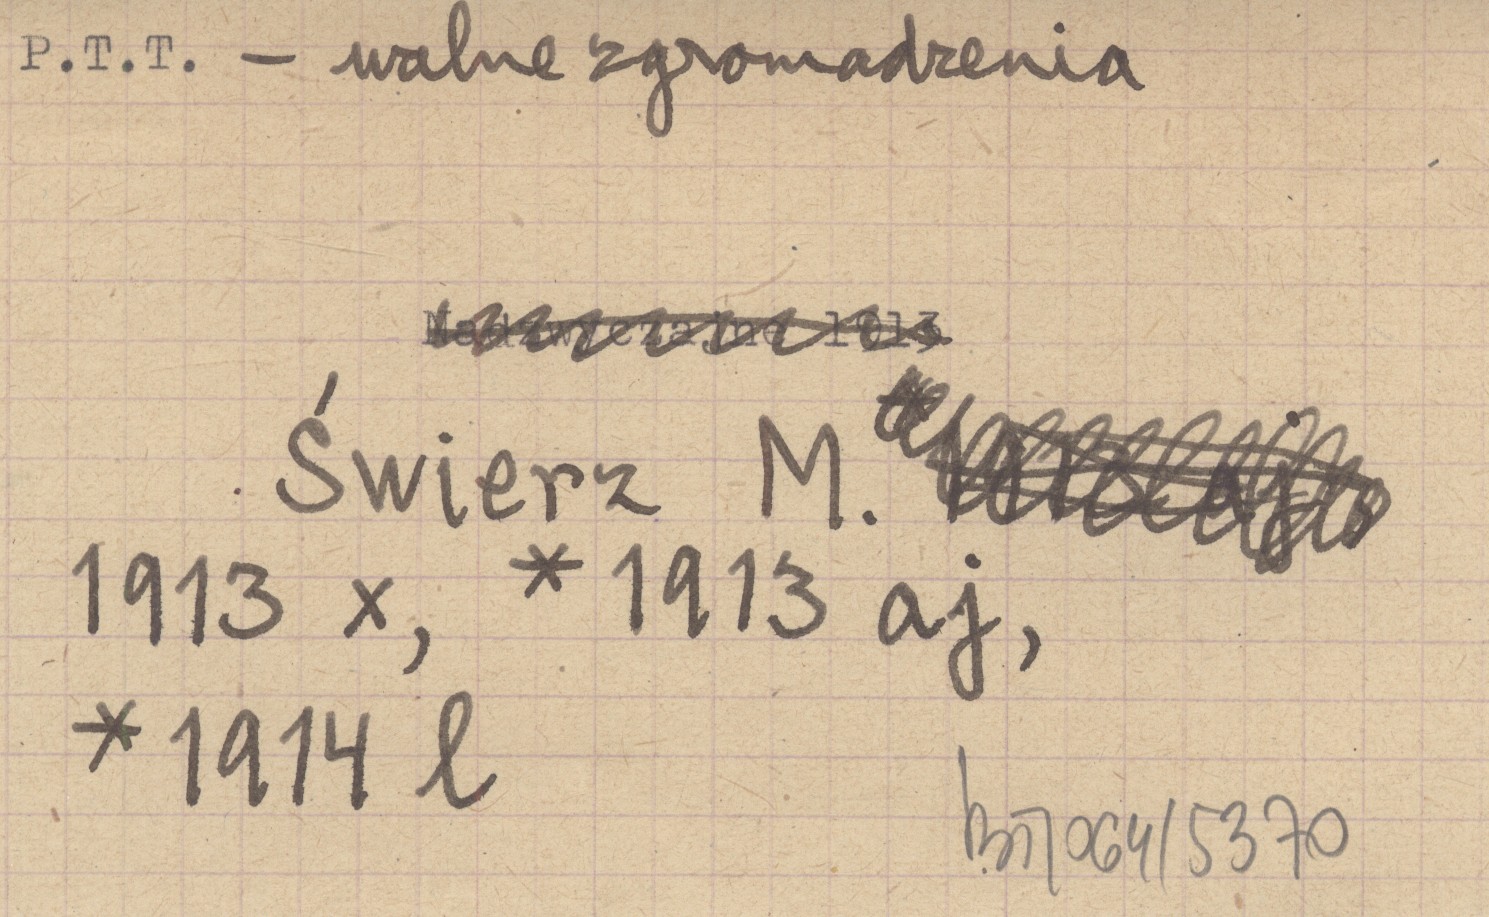 P.T.T. – walne zgromadzenia
Nadzwyczajne 1913
Świerz M.
1913 x, *1913 aj,
*1914 l
064/5370